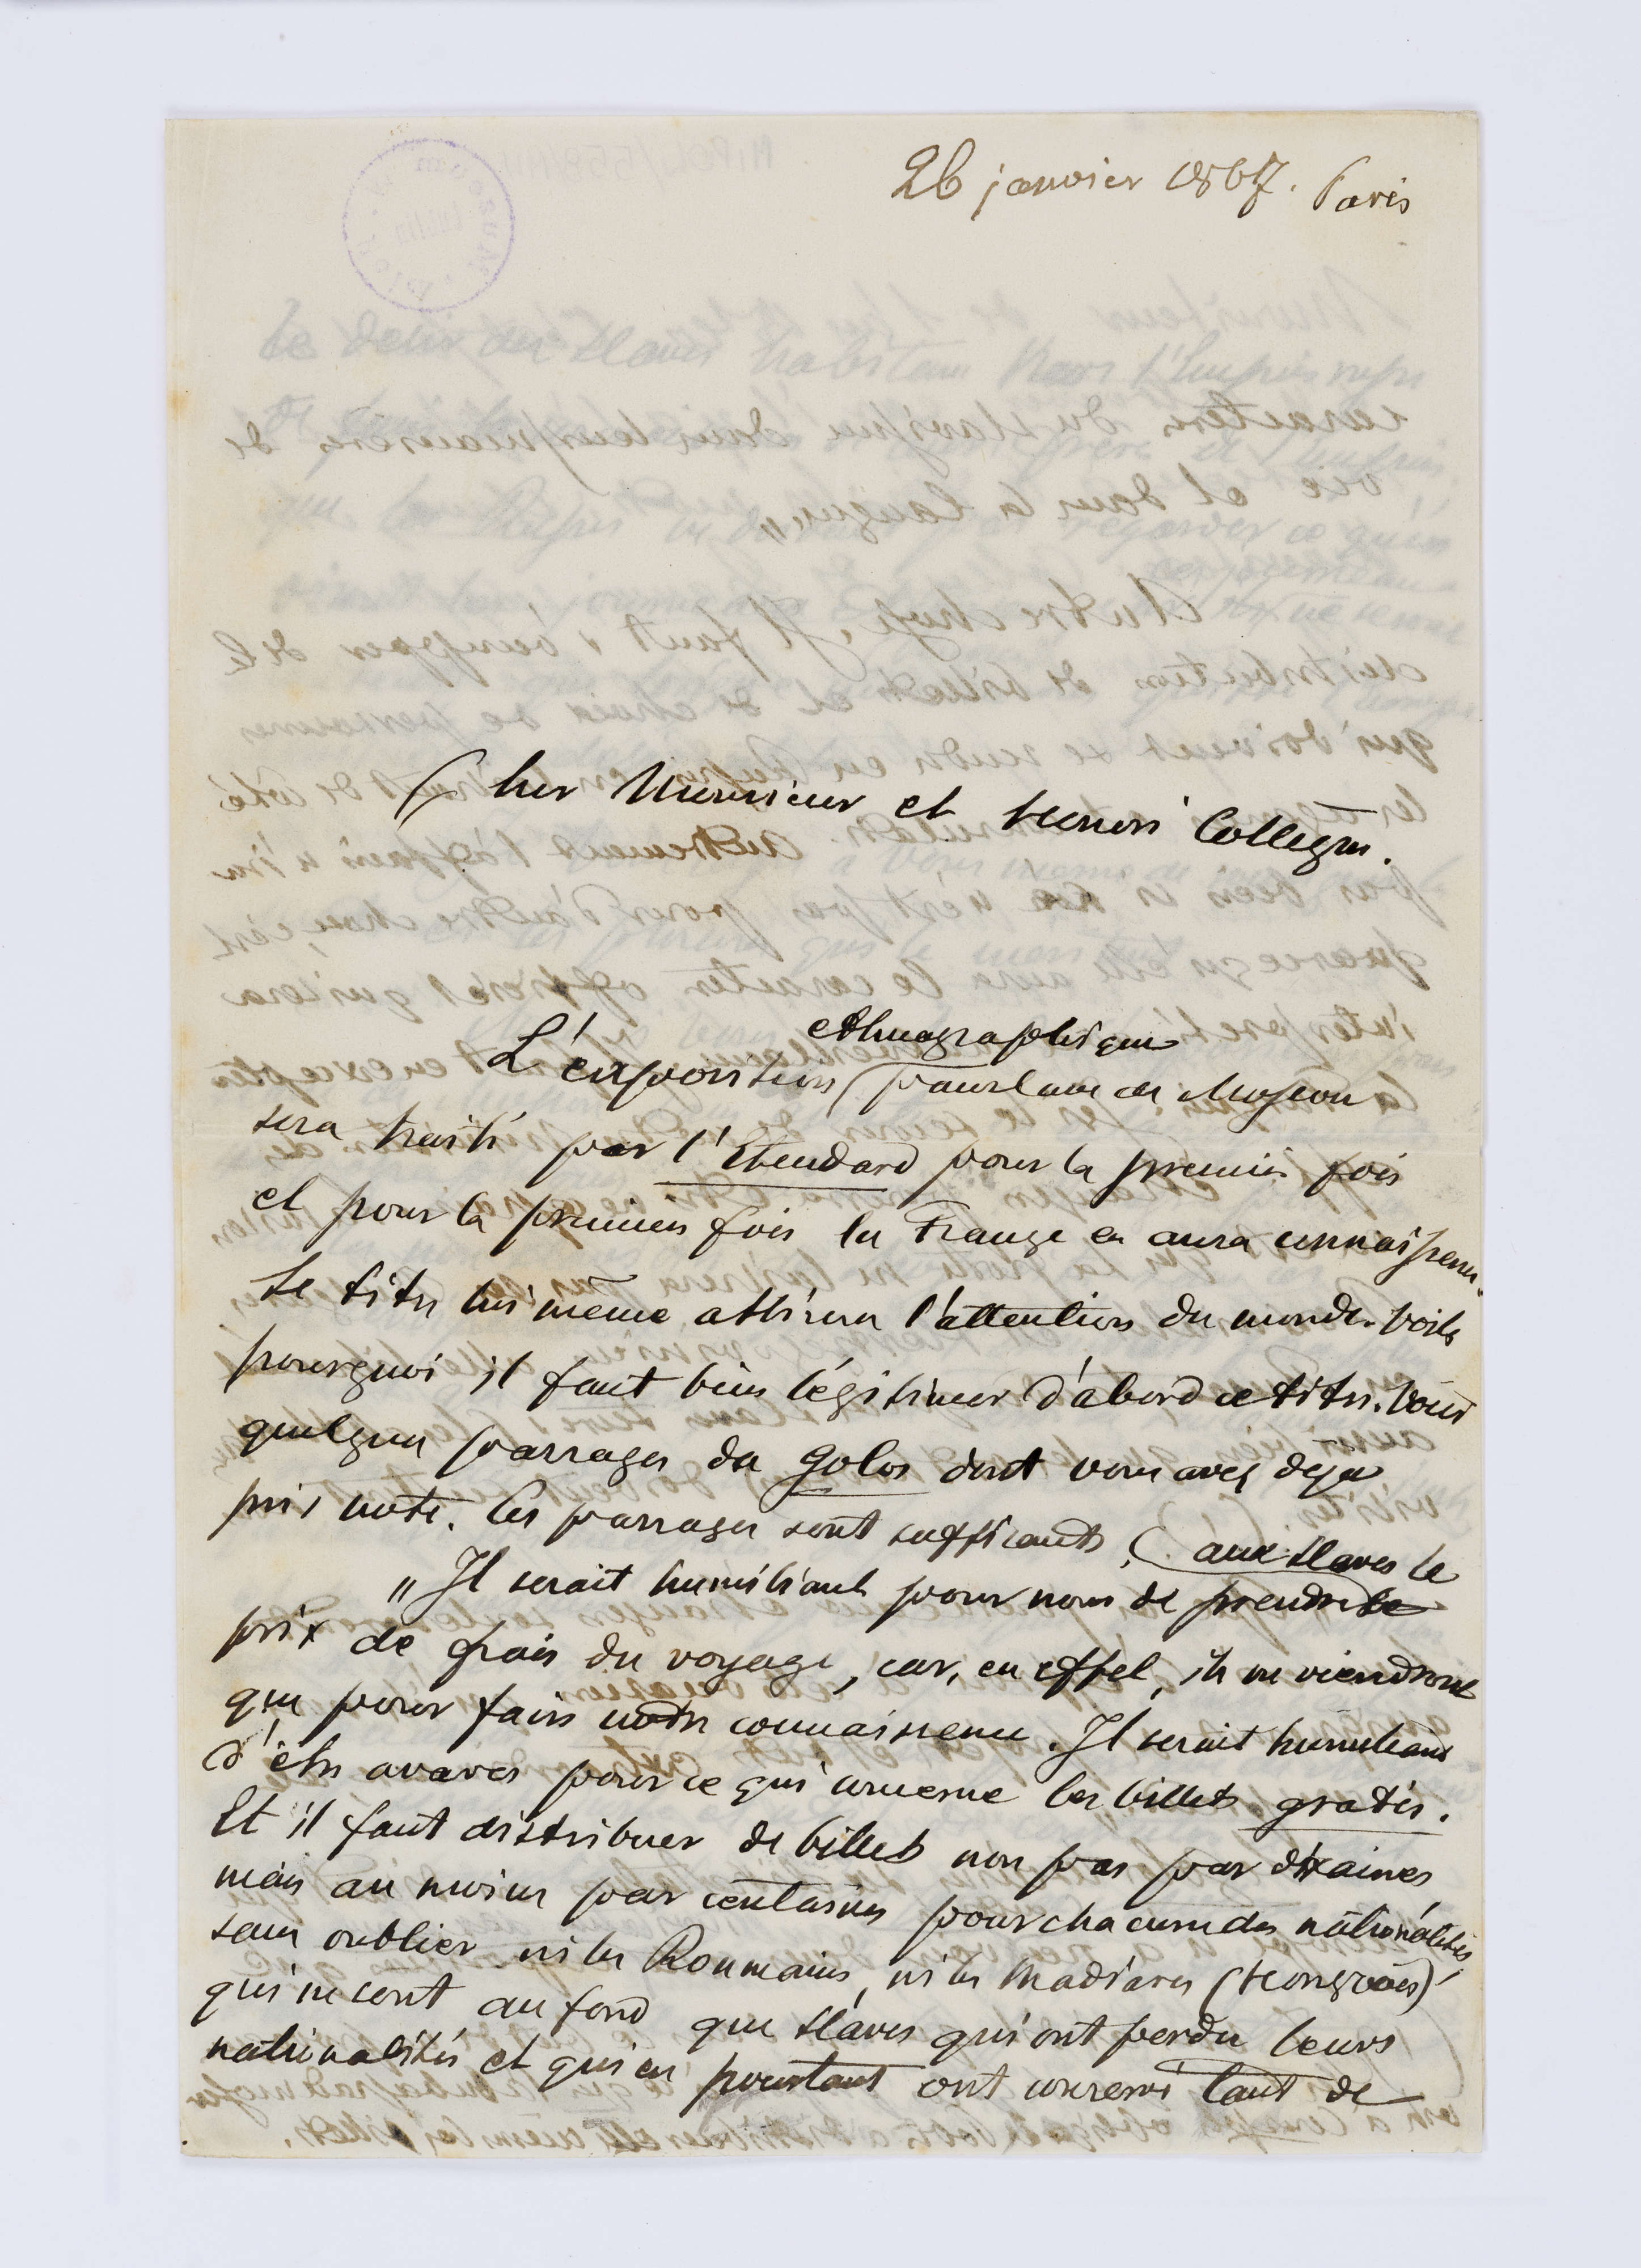 26 janvier 1867. Paris
Cher Monsieur et honoré Collegue.
ethnographique
L'exposition panslave de Moscou
sera traité par l'Etendard pour la premiere fois
et pour la premiere fois la France en aura connaissance.
Le titre lui même attirera l'attention du monde. Voila
pourquoi il faut bien légitimer d'abord ce titre. Voici
quelques passages du Golos dont vous avez déjà
pris note. Ces passages sont suffisants.
aux slaves le
„Il serait humiliant pour nous de prendre
prix de frais du voyage, car, en effet, ils ne viendront
que pour faire notre connaissance. Il serait humiliant
d'être avares pour ce qui concerne les billets gratis.
Et il faut distribuer de billets non pas par dixaines
mais au moins par centaines pour chacune des nationalités
sans oublier ni les Roumains, ni les Madiares (Hongrois)
qui ne sont au fond que slaves qui ont perdu leurs
nationalités et qui en pourtant ont conservé tant de